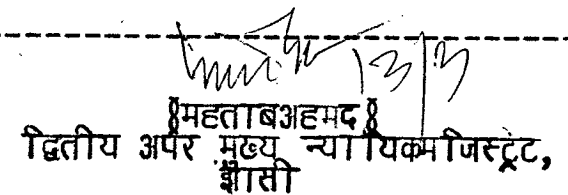 13/3
§महताबअहमद§
द्वितीय अपर मुख्य न्यायिकमजिस्ट्रेट,
झासी